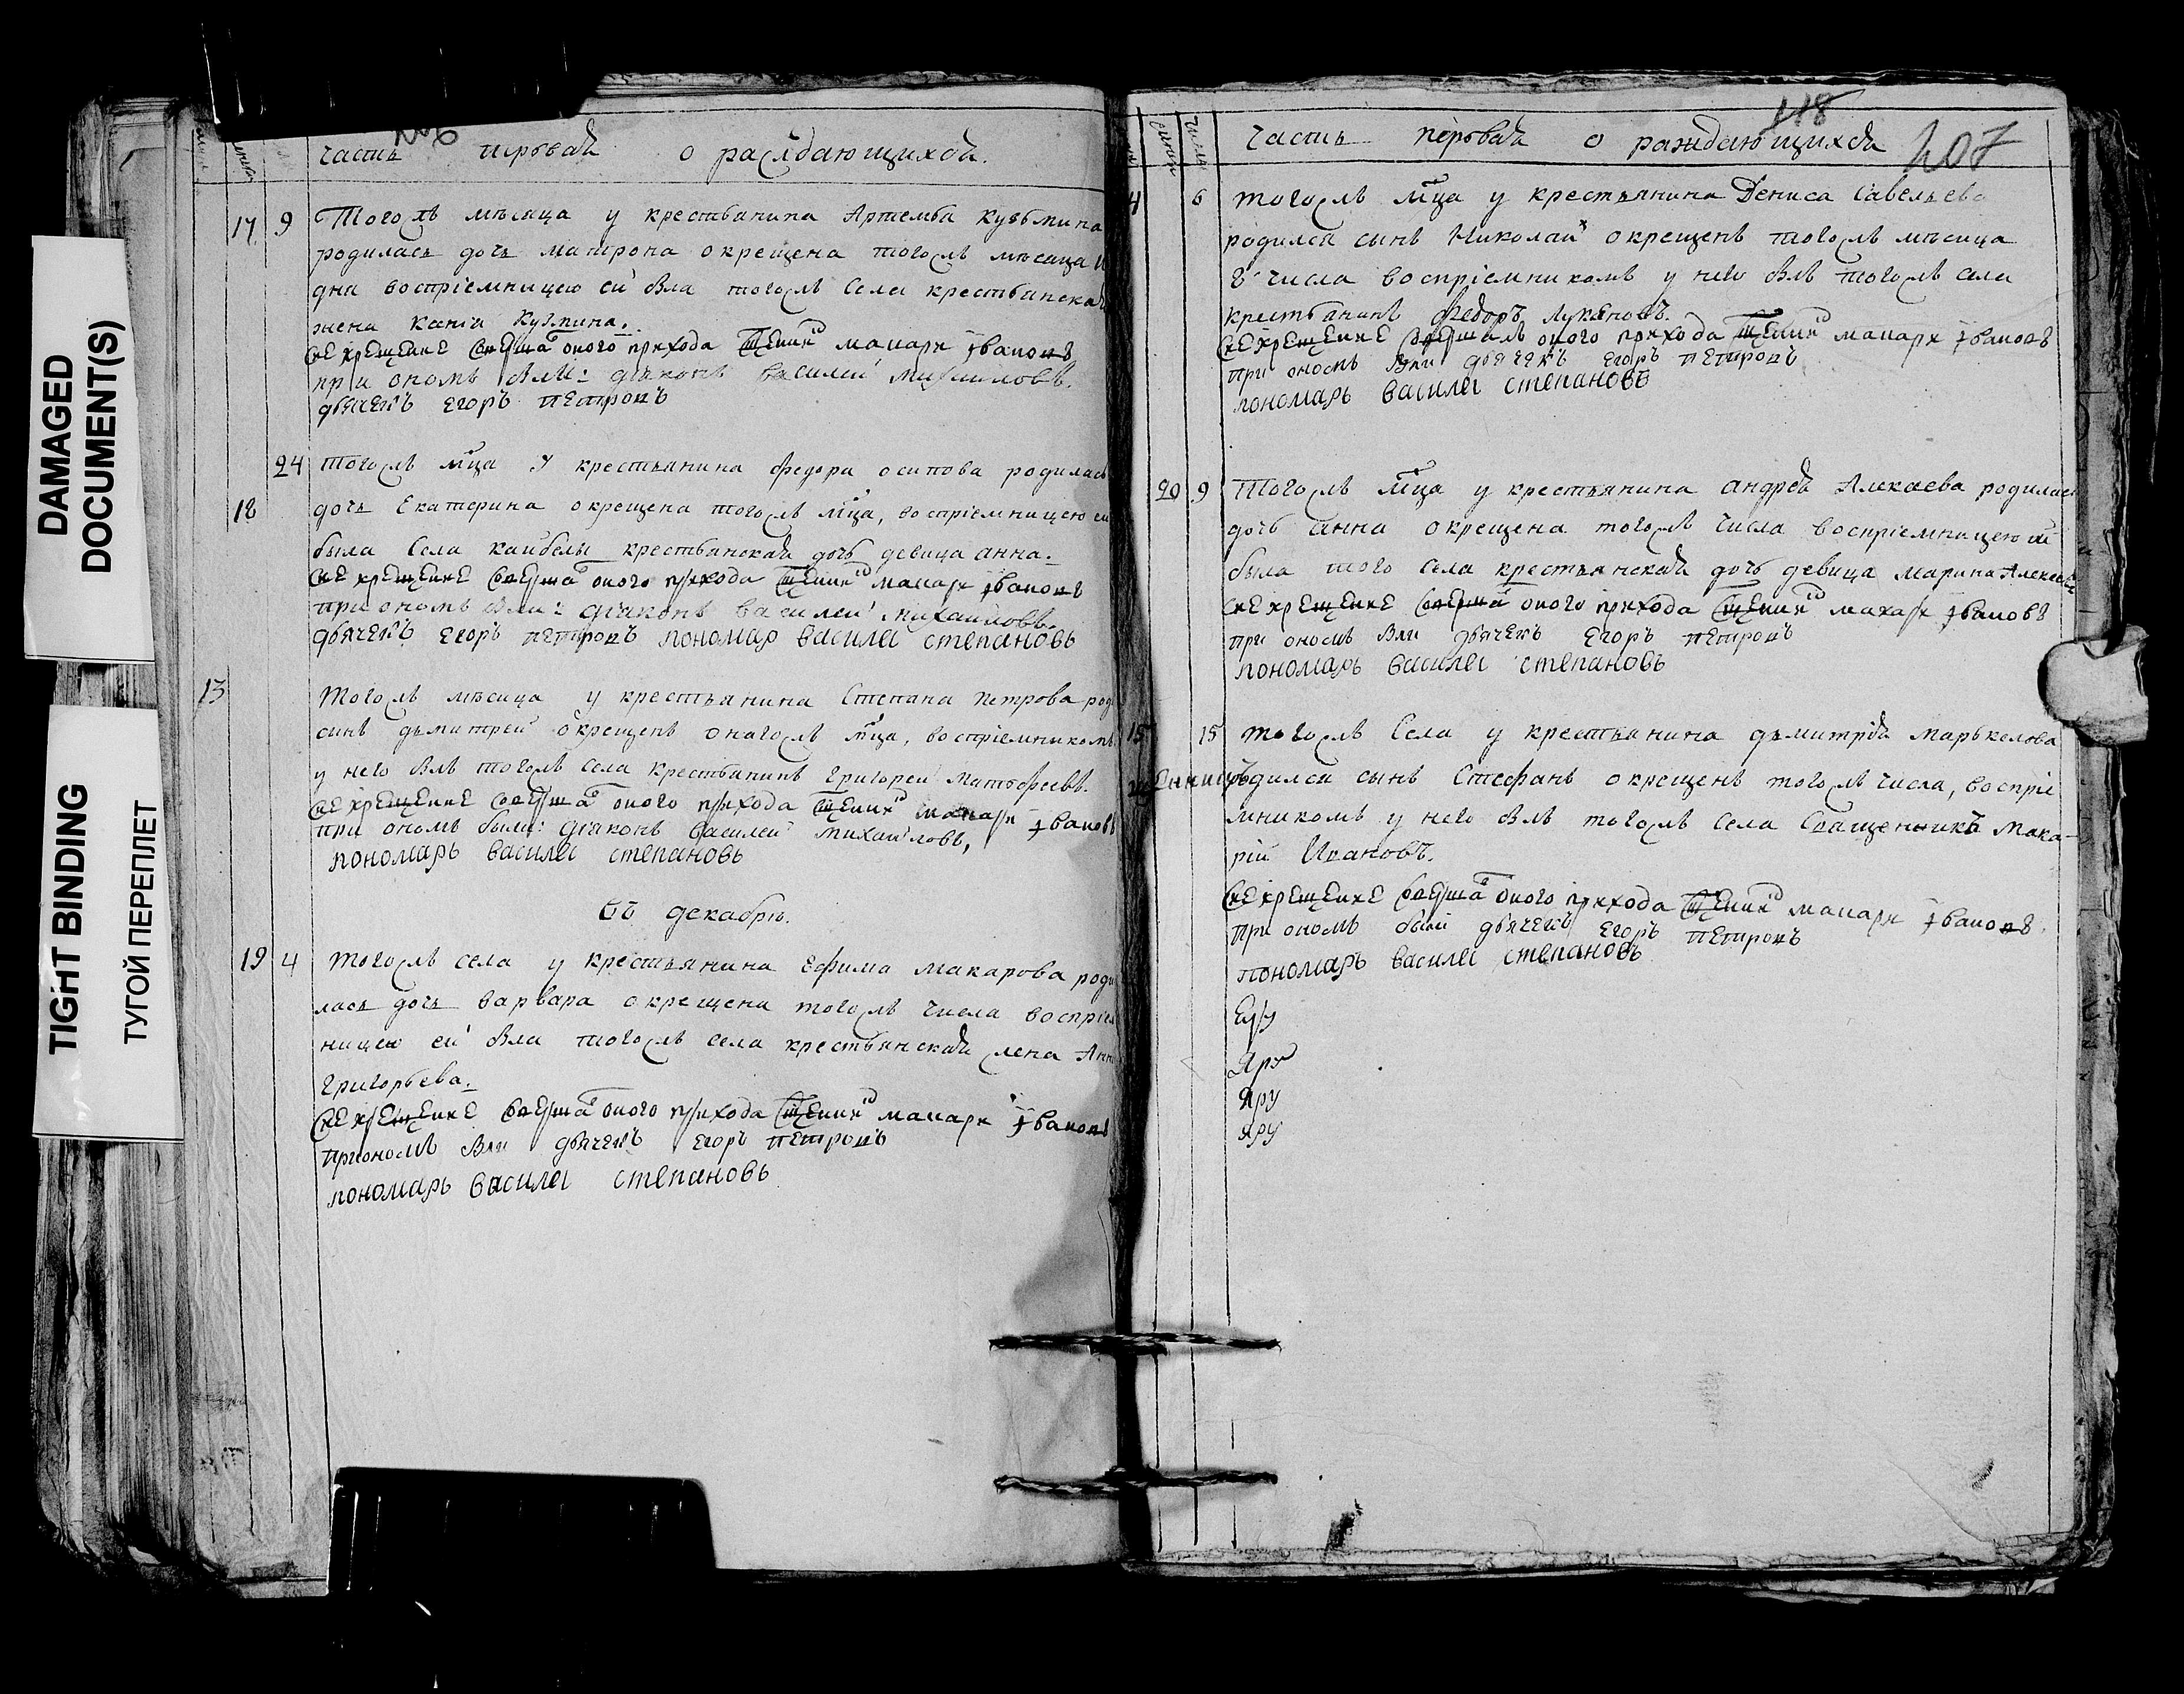 DAMAGED
DOCUMENT(S)
TIGHT BINDING
ТУГОЙ ПЕРЕПЛЕТ
часть перьвая о раждающихся.
17 9 Того жъ мѣсяца у крестьянина Артемья Кузьмина
родилась дочь матрона окрещена того жъ мѣсяца
дня воспріемницею ей бла того жъ Села крестьянская
жена Кузмина.
сие крещение оного прихода макари Iвановъ
при ономъ бли: діаконъ василей михаиловъ.
дьячекъ егоръ петровъ
24 того жъ мца у крестьянина федора осипова родилась
18 дочь Екатерина окрещена того жъ мца, воспріемницею ей
была Села каибелы крестьянская дочь девица анна.
сие крещение оного прихода макари Iвановъ
при ономъ бли: діаконъ василей михаиловъ.
дьячекъ егоръ петровъ пономар василеи степановъ
13 того жъ мѣсяца у крестьянина Степана петрова род
синъ дьмитрей окрещенъ онаго жъ мца, воспріемникомъ
у него блъ того жъ села крестьянинъ григорей матьфеевъ.
сие крещение оного прихода макари Iвановъ
при ономъ были: діаконъ василей михаиловъ,
пономарь василеи степановъ
Въ декабрѣ.
19 4 того жъ села у крестьянина ефима макарова роди
лась дочь варвара окрещена того жъ числа воспріем
ницею ей бла того жъ села крестьянская жена Анн
григорьева.
сие крещение оного прихода макари Iвановъ
при ономъ бли дьячекъ егоръ петровъ
пономарь василеи степановъ
118
407
часть перьвая о раждающихся
4 6 того жъ мца у крестьянина Дениса Савельева
родился сынъ Николай окрещенъ того жъ мѣсяца
8 числа воспріемникомъ у него блъ того жъ села
крестьянинъ федоръ лукяновъ.
сие крещение оного прихода макари Iвановъ
при ономъ бли дьячекъ егоръ петровъ
пономарь василеи степановъ
20 9 того жъ мца у крестьянина андрея Алекаева родилась
дочь анна окрещена того жъ числа воспріемницею ей
была того села крестьянская дочь девица марина
сие крещение оного прихода макари Iвановъ
при ономъ бли дьячекъ егоръ петровъ
пономарь василеи степановъ
15 15 того жъ Села у крестьянина дьмитрія марькелова
родился сынъ Стефанъ окрещенъ того жъ числа, воспріе
мникомъ у него блъ того жъ села Священникъ Мака-
рій Ивановъ.
сие крещение оного прихода макари Iвановъ
при ономъ были дьячекъ егоръ петровъ
пономарь василеи степановъ